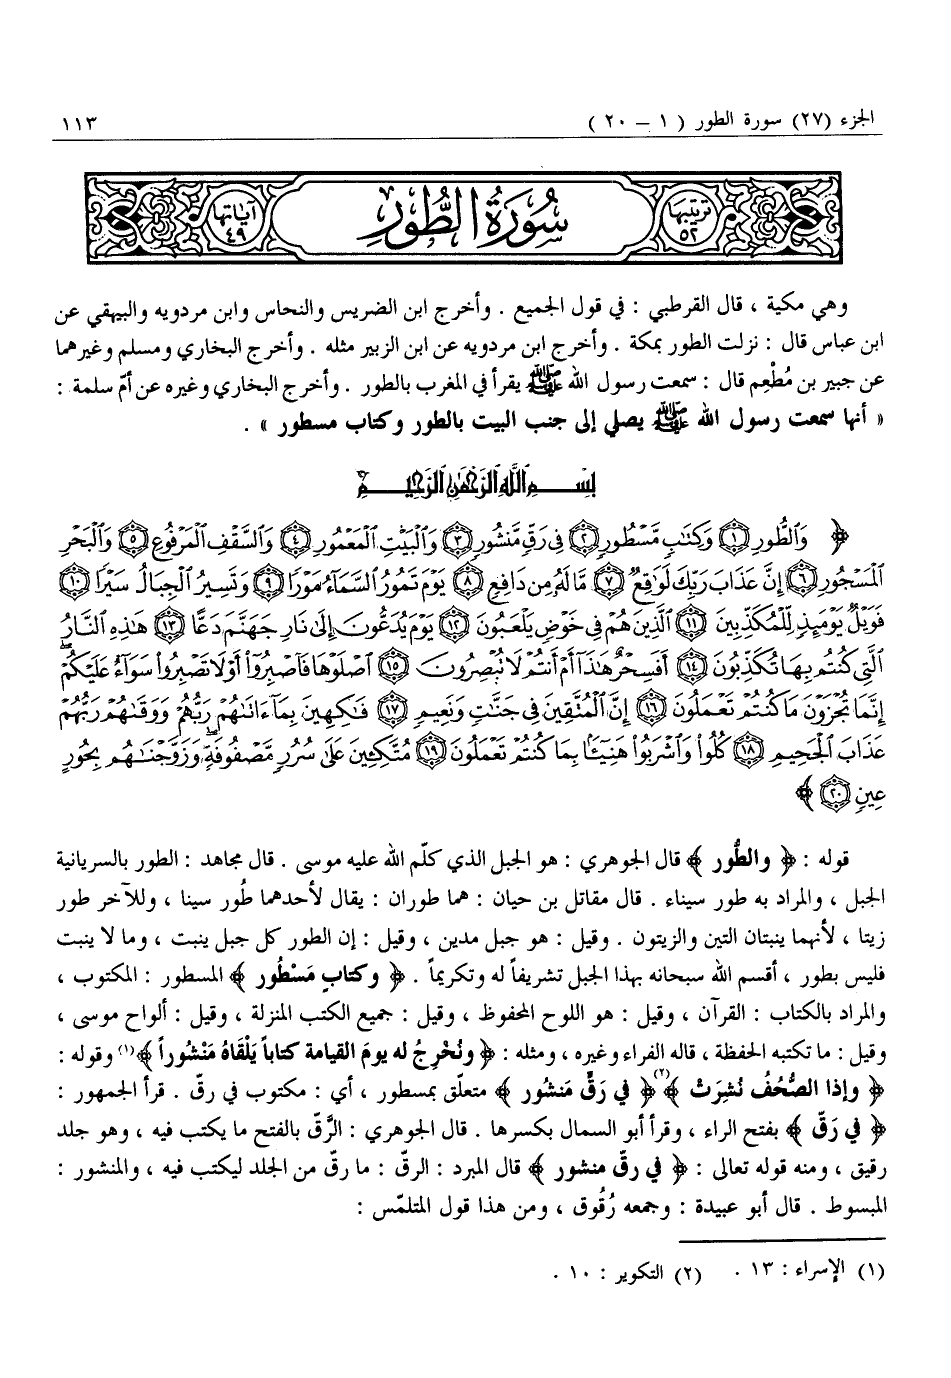 الجزء (٢٧) سورة الطور ( ١ – ٢٠ ) ١١٣
ترتيبها ٥٢ سُورَةُ الطُّورِ آياتها ٤٩
وهي مكية ، قال القرطبي : في قول الجميع . وأخرج ابن الضريس والنحاس وابن مردويه والبيهقي عن
ابن عباس قال : نزلت الطور بمكة . وأخرج ابن مردويه عن ابن الزبير مثله . وأخرج البخاري ومسلم وغيرهما
عن جبير بن مُطْعِم قال : سمعت رسول الله ﷺ يقرأ في المغرب بالطور . وأخرج البخاري وغيره عن أمّ سلمة :
« أنها سمعت رسول الله ﷺ يصلي إلى جنب البيت بالطور وكتاب مسطور » .
بِسْمِ اللَّهِ الرَّحْمَٰنِ الرَّحِيمِ
﴿ وَالطُّورِ ١ وَكِتَابٍ مَّسْطُورٍ ٢ فِي رَقٍّ مَّنشُورٍ ٣ وَالْبَيْتِ الْمَعْمُورِ ٤ وَالسَّقْفِ الْمَرْفُوعِ ٥ وَالْبَحْرِ
الْمَسْجُورِ ٦ إِنَّ عَذَابَ رَبِّكَ لَوَاقِعٌ ٧ مَّا لَهُ مِن دَافِعٍ ٨ يَوْمَ تَمُورُ السَّمَاءُ مَوْرًا ٩ وَتَسِيرُ الْجِبَالُ سَيْرًا ١٠
فَوَيْلٌ يَوْمَئِذٍ لِّلْمُكَذِّبِينَ ١١ الَّذِينَ هُمْ فِي خَوْضٍ يَلْعَبُونَ ١٢ يَوْمَ يُدَعُّونَ إِلَىٰ نَارِ جَهَنَّمَ دَعًّا ١٣ هَٰذِهِ النَّارُ
الَّتِي كُنتُم بِهَا تُكَذِّبُونَ ١٤ أَفَسِحْرٌ هَٰذَا أَمْ أَنتُمْ لَا تُبْصِرُونَ ١٥ اصْلَوْهَا فَاصْبِرُوا أَوْ لَا تَصْبِرُوا سَوَاءٌ عَلَيْكُمْ
إِنَّمَا تُجْزَوْنَ مَا كُنتُمْ تَعْمَلُونَ ١٦ إِنَّ الْمُتَّقِينَ فِي جَنَّاتٍ وَنَعِيمٍ ١٧ فَاكِهِينَ بِمَا آتَاهُمْ رَبُّهُمْ وَوَقَاهُمْ رَبُّهُمْ
عَذَابَ الْجَحِيمِ ١٨ كُلُوا وَاشْرَبُوا هَنِيئًا بِمَا كُنتُمْ تَعْمَلُونَ ١٩ مُتَّكِئِينَ عَلَىٰ سُرُرٍ مَّصْفُوفَةٍ وَزَوَّجْنَاهُم بِحُورٍ
عِينٍ ٢٠ ﴾
قوله : ﴿ والطُّور ﴾ قال الجوهري : هو الجبل الذي كلّم الله عليه موسى . قال مجاهد : الطور بالسريانية
الجبل ، والمراد به طور سيناء . قال مقاتل بن حيان : هما طوران : يقال لأحدهما طُور سينا ، وللآخر طور
زيتا ، لأنهما ينبتان التين والزيتون . وقيل : هو جبل مدين ، وقيل : إن الطور كل جبل ينبت ، وما لا ينبت
فليس بطور ، أقسم الله سبحانه بهذا الجبل تشريفاً له وتكريماً . ﴿ وكتابٍ مَسْطُور ﴾ المسطور : المكتوب ،
والمراد بالكتاب : القرآن ، وقيل : هو اللوح المحفوظ ، وقيل : جميع الكتب المنزلة ، وقيل : ألواح موسى ،
وقيل : ما تكتبه الحفظة ، قاله الفراء وغيره ، ومثله : ﴿ ونُخْرِجُ له يومَ القيامة كتاباً يَلْقَاهُ مَنْشُوراً ﴾(١) وقوله :
﴿ وإذا الصُّحُفُ نُشِرَتْ ﴾(٢) ﴿ في رَقٍّ مَنشُور ﴾ متعلّق بمسطور ، أي : مكتوب في رقّ . قرأ الجمهور :
﴿ في رَقّ ﴾ بفتح الراء ، وقرأ أبو السمال بكسرها . قال الجوهري : الرَّقّ بالفتح ما يكتب فيه ، وهو جلد
رقيق ، ومنه قوله تعالى : ﴿ في رقّ منشور ﴾ قال المبرد : الرقّ : ما رقّ من الجلد ليكتب فيه ، والمنشور :
المبسوط . قال أبو عبيدة : وجمعه رُقُوق ، ومن هذا قول المتلمّس :
(١) الإسراء : ١٣ . (٢) التكوير : ١٠ .